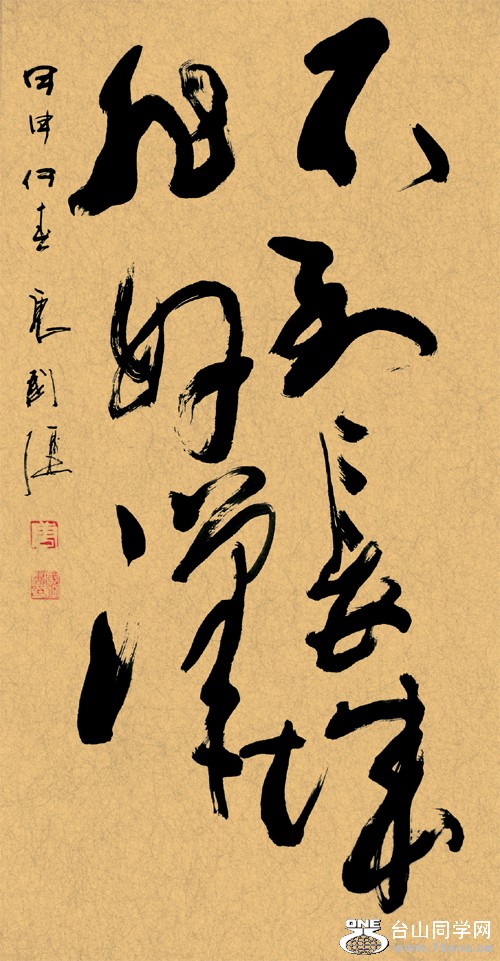 不到長城
非好漢
甲申仲春
ONE
台山同学网